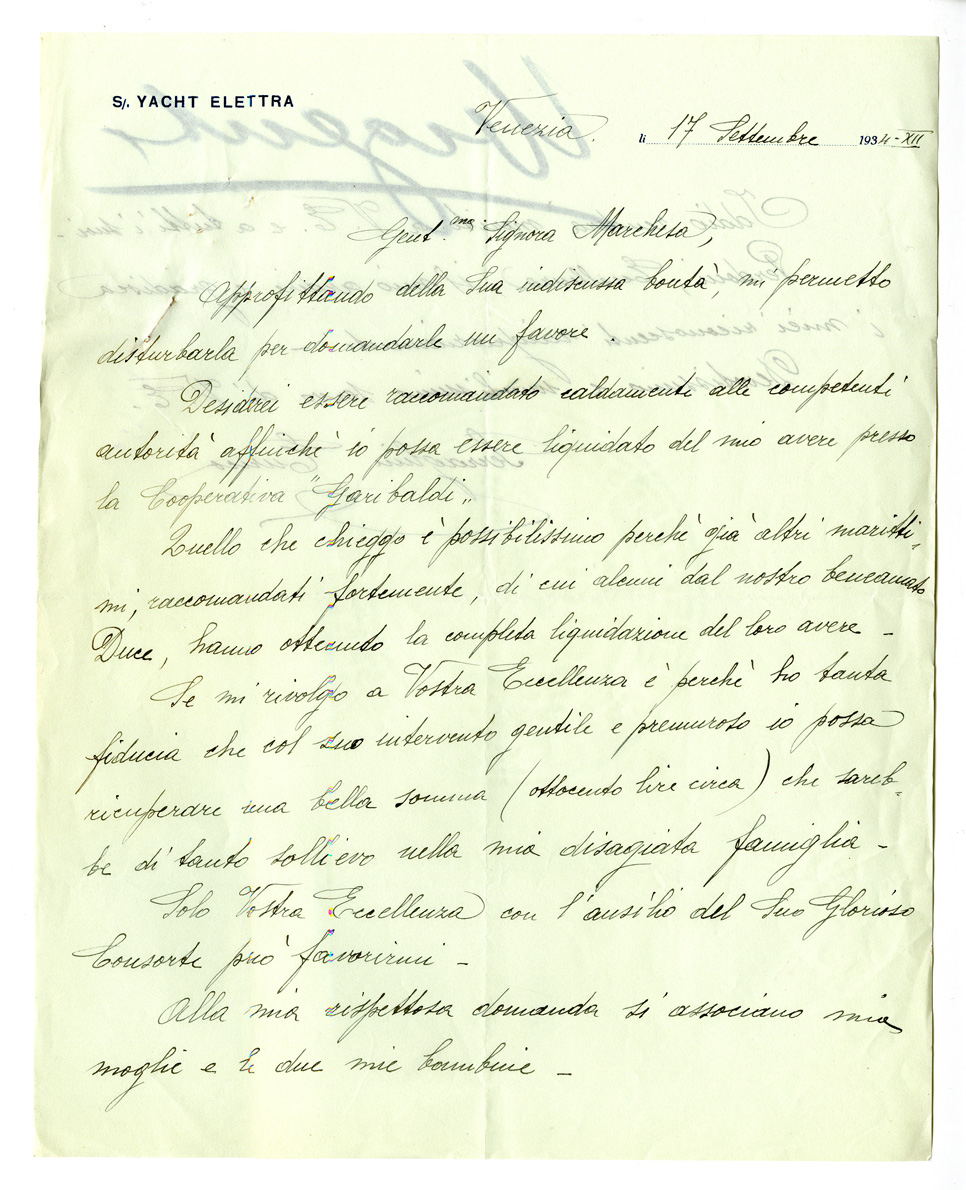 S/. YACHT ELETTRA
Venezia li 17 Settembre 1934-XII
Gent.ma Signora Marchesa,
Approfittando della Sua indiscussa bontà, mi permetto
disturbarla per domandarle un favore.
Desiderei essere raccomandato caldamente alle competenti
autorità affinchè io possa essere liquidato del mio avere presso
la Cooperativa "Garibaldi„
Quello che chieggo è possibilissimo perchè già altri maritti-
mi, raccomandati fortemente, di cui alcuni dal nostro beneamato
Duce, hanno ottenuto la completa liquidazione del loro avere -
Se mi rivolgo a Vostra Eccellenza è perchè ho tanta
fiducia che col suo intervento gentile e premuroso io possa
ricuperare una bella somma (ottocento lire circa) che sareb-
be di tanto sollievo nella mia disagiata famiglia -
Solo Vostra Eccellenza con l'ausilio del Suo Glorioso
Consorte può favorirmi -
Alla mia rispettosa domanda si associano mia
moglie e le due mie bambine -